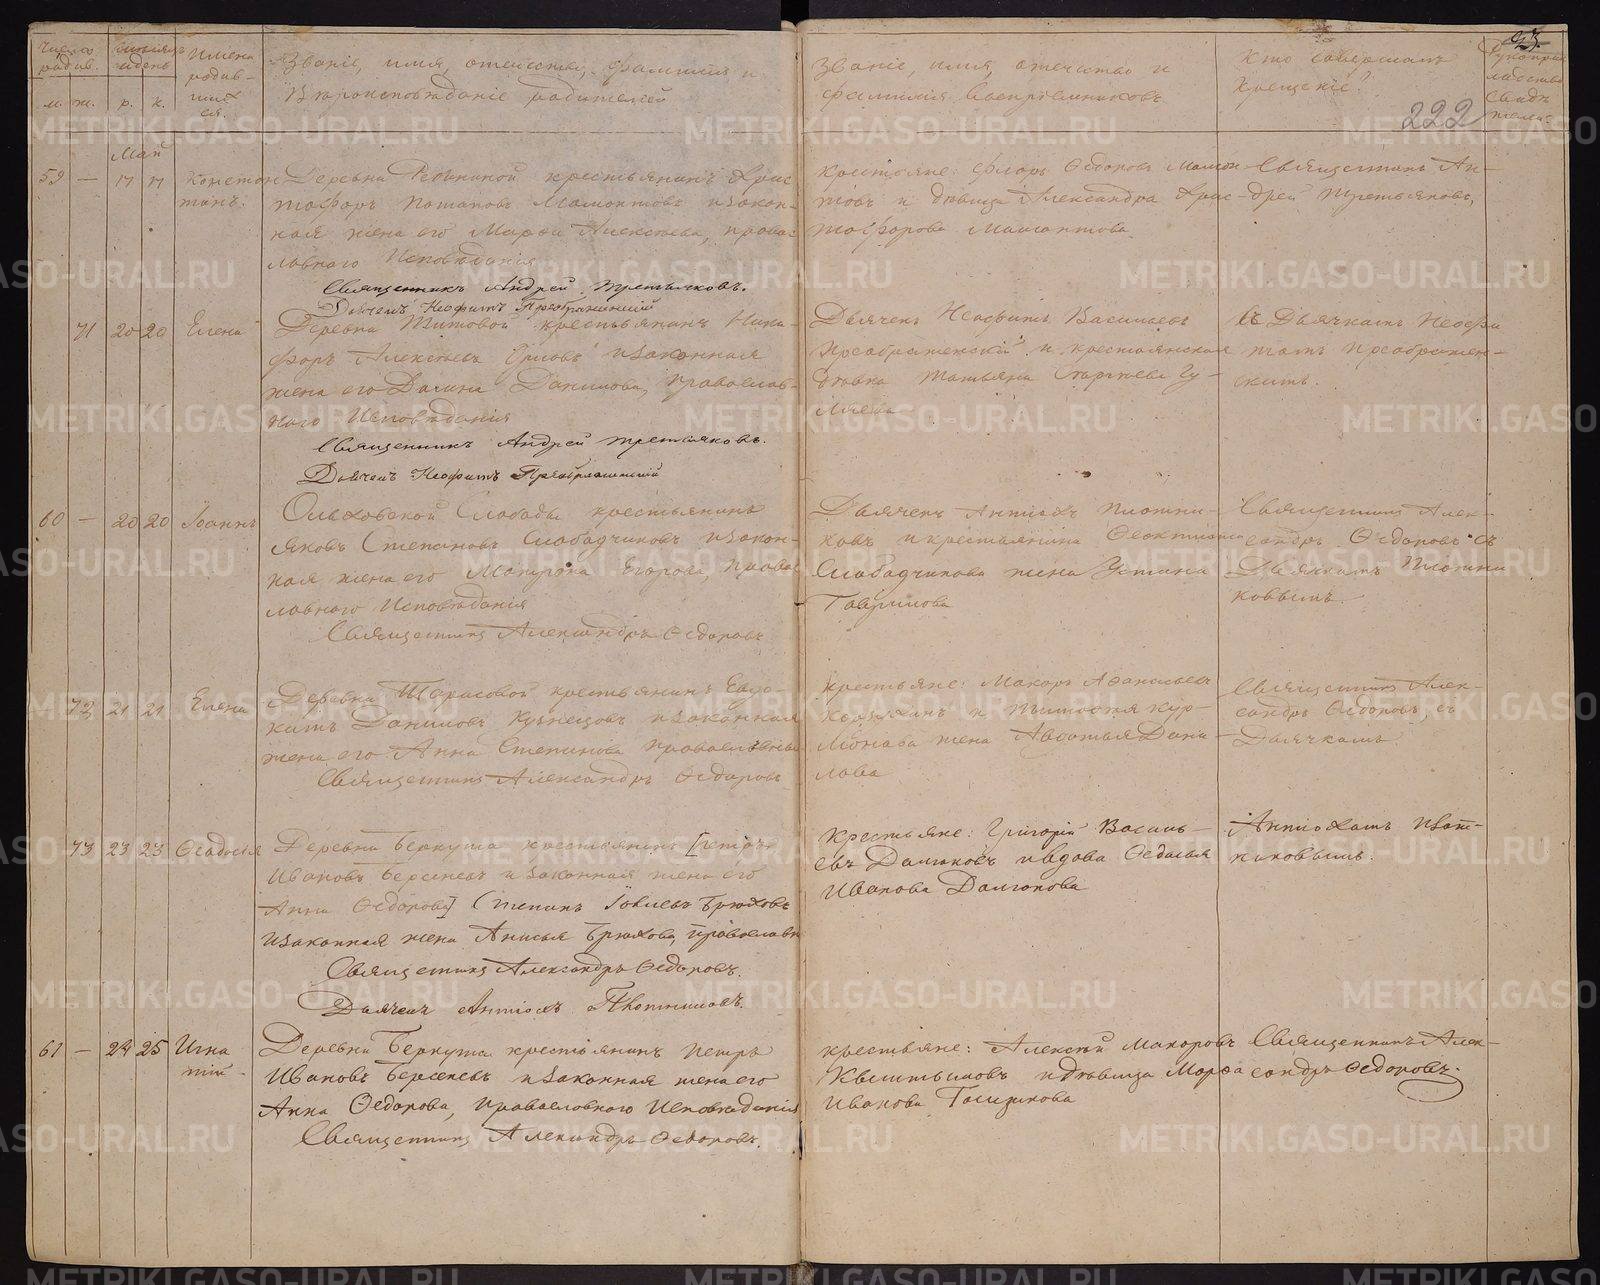 Число родив.
м. ж.
Мѣсяцъ и день
р. к.
Имена родив-
шихся.
Званіе, имя, отечество, фамилія и
Вѣроисповѣданіе родителей
Званіе, имя, отечество и
фамилія Воспріемниковъ
Кто совершалъ
Крещеніе?
222
Май
59 — 17 17 Констан
тинъ.
Деревни крестьянинъ Хрис
тофоръ Потаповъ Мамонтовъ и закон-
ная жена его Марѳа Алексѣева, право-
лавнаго Исповѣданія
Священникъ Андрей Третьяковъ.
Дьячекъ Неофитъ Преображенскій
Крестьяне: Флоръ Ѳедоровъ Мамон
товъ и дѣвица Александра Хрис-
тофорова Мамонтова.
Священникъ Ан-
дрей Третьяковъ,
71 20 20 Елена
Деревни Титовой крестьянинъ Ники-
форъ Алексѣевъ и законная
жена его Данилова, Православ-
наго Исповѣданія
Священникъ Андрей Третьяковъ.
Дьячекъ Неофитъ Преображенскій
Дьячекъ Неофитъ Васильевъ
Преображенскій и крестьянская
дѣвка Татьяна Гу-
ляева
съ Дьячкомъ Неофи
томъ Преображен-
скимъ.
60 — 20 20 Іоаннъ
Ольховской Слободы крестьянинъ
Яковъ Степановъ Слободчиковъ и закон-
ная жена его Матрона Егорова, право
лавнаго Исповѣданія
Священникъ Александръ Ѳедоровъ
Дьячекъ Антіохъ Плотни-
ковъ и крестьянина Ѳеоктиста
Слободчикова жена Устина
Гаврилова
Священникъ Алек-
сандръ Ѳедоровъ съ
Дьячкомъ Плотни
ковымъ.
72 21 21 Елена
Деревни Тарасовой крестьянинъ Евдо-
кимъ Даниловъ Кузнецовъ и законная
жена его Анна Степанова православны
Священникъ Александръ Ѳедоровъ
Крестьяне: Макаръ Аѳанасьевъ
и Тимоѳея Кур-
жена Авдотья Дани-
лова
Священникъ Алек-
сандръ Ѳедоровъ, съ
Дьячкомъ
73 23 23 Ѳеодосія
Деревни Беркута крестьянинъ [Петръ
Ивановъ Берсеневъ и законная жена его
Анна Ѳедорова] Степанъ Іовлевъ Брюховъ
и законная жена Анисья Брюхова, Православн
Священникъ Александръ Ѳедоровъ.
Дьячекъ Антіохъ Плотниковъ.
Крестьяне: Григорій Василь-
евъ Далгаковъ и вдова Ѳедосья
Иванова Далгакова
Антіохомъ Плот-
никовымъ.
61 — 24 25 Игна
тій —
Деревни Беркута крестьянинъ Петръ
Ивановъ Берсеневъ и законная жена его
Анна Ѳедорова, Православнаго Исповѣданія
Священникъ Александръ Ѳедоровъ.
Крестьяне: Алексѣй Макаровъ
и дѣвица Марѳа
Иванова Голицикова
Священникъ Алек-
сандръ Ѳедоровъ.
METRIKI.GASO-URAL.RU